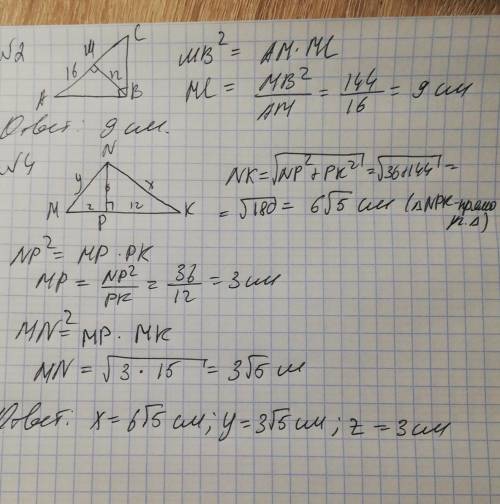 №2
C
M
16
12
A
B
MB² = AM · MC
MC = MB²/AM = 144/16 = 9 см
Ответ: 9 см.
№4
N
y
6
x
M
z
12
K
P
NK = √(NP² + PK²) = √(36+144) =
= √180 = 6√5 см (△NPK-прямо
у.△)
NP² = MP · PK
MP = NP²/PK = 36/12 = 3 см
MN² = MP · MK
MN = √(3 · 15) = 3√5 см
Ответ: x = 6√5 см; y = 3√5 см; z = 3 см